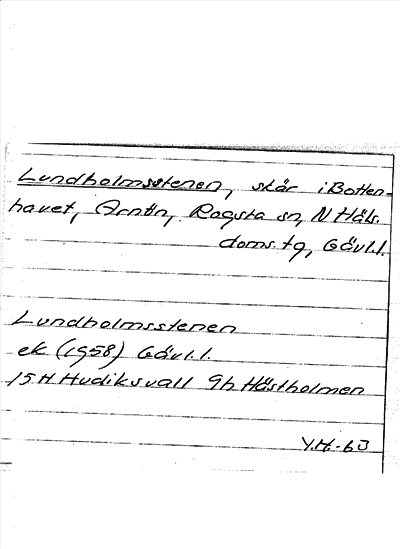 Lundholmsstenen, skär i Botten-
havet, Arnön, Rogsta sn, N Häls.
doms.tg, Gävl.l.
Lundholmsstenen
ek (1958) Gävl.l.
15 H Hudiksvall 9h Hästholmen
Y.H.-63